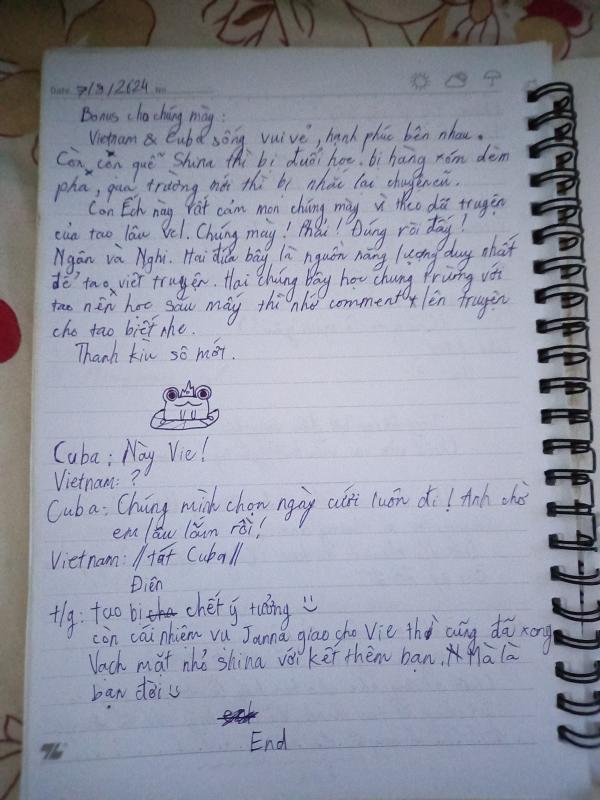 Date 7/9/2024 No
Bonus cho chúng mày:
Vietnam & Cuba sống vui vẻ, hạnh phúc bên nhau.
Còn con quễ Shina thì bị đuổi học, bị hàng xóm dèm
pha, qua trường mới thì bị nhắc lại chuyện cũ.
Con Ếch này rất cảm mơn chúng mày vì theo dõi truyện
của tao lâu vcl. Chúng mày! Phải! Đúng rồi đấy!
Ngân và Nghi. Hai đứa bây là nguồn năng lượng duy nhất
để tao viết truyện. Hai chúng bây học chung trường với
tao nên học sáu mấy thì nhớ comment lên truyện
cho tao biết nhe.
Thanh kiu sô mớt.
Cuba: Này Vie!
Vietnam: ?
Cuba: Chúng mình chọn ngày cưới luôn đi! Anh chờ
em lâu lắm rồi!
Vietnam: //tát Cuba//
Điên
t/g: tao bị chết ý tưởng
còn cái nhiệm vụ Janna giao cho Vie thì cũng đã xong
Vạch mặt nhỏ Shina với kết thêm bạn. Mà là
bạn đời
End
96